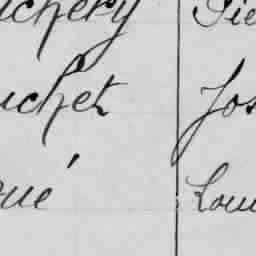 uchery Pie
uchet Jos
qué Loui